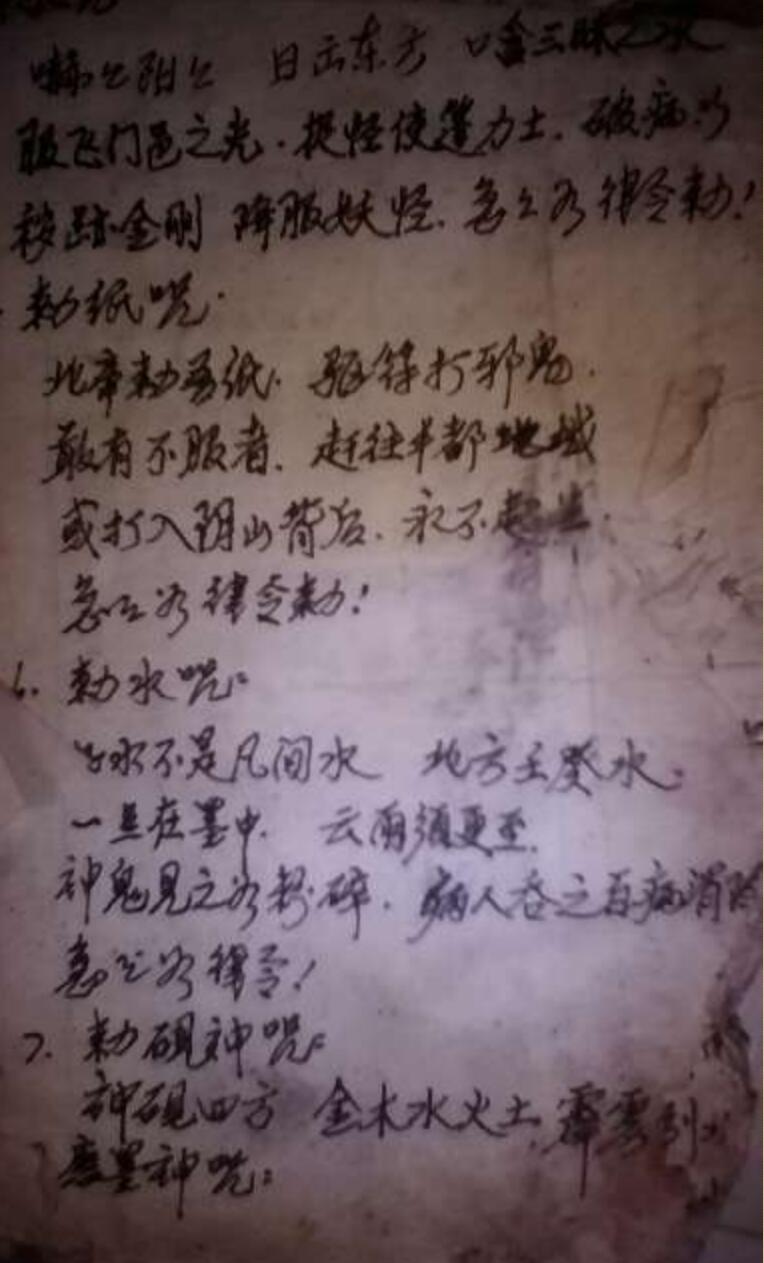 日出东方 口含三昧之水
服飞门邑之光.捉怪使篷力士.破病
秽跡金刚 降服妖怪.急々如律令勅!
勅纸咒.
北帝勅吾纸.驱符打邪鬼.
敢有不服者.赶往丰都地域
或打入阴山背后.永不超生.
急々如律令勅!
6.勅水咒:
此水不是凡间水 北方壬癸水.
一点在墨中.云雨须更至.
神鬼见之如粉碎.病人吞之百病消除
急々如律令!
7.勅砚神咒:
神砚四方 金木水火土.
磨墨神咒: